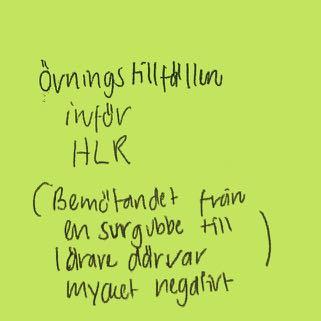 Övningstillfällen
inför
HLR
(Bemötandet från
en surgubbe till
lärare där var
mycket negativt)